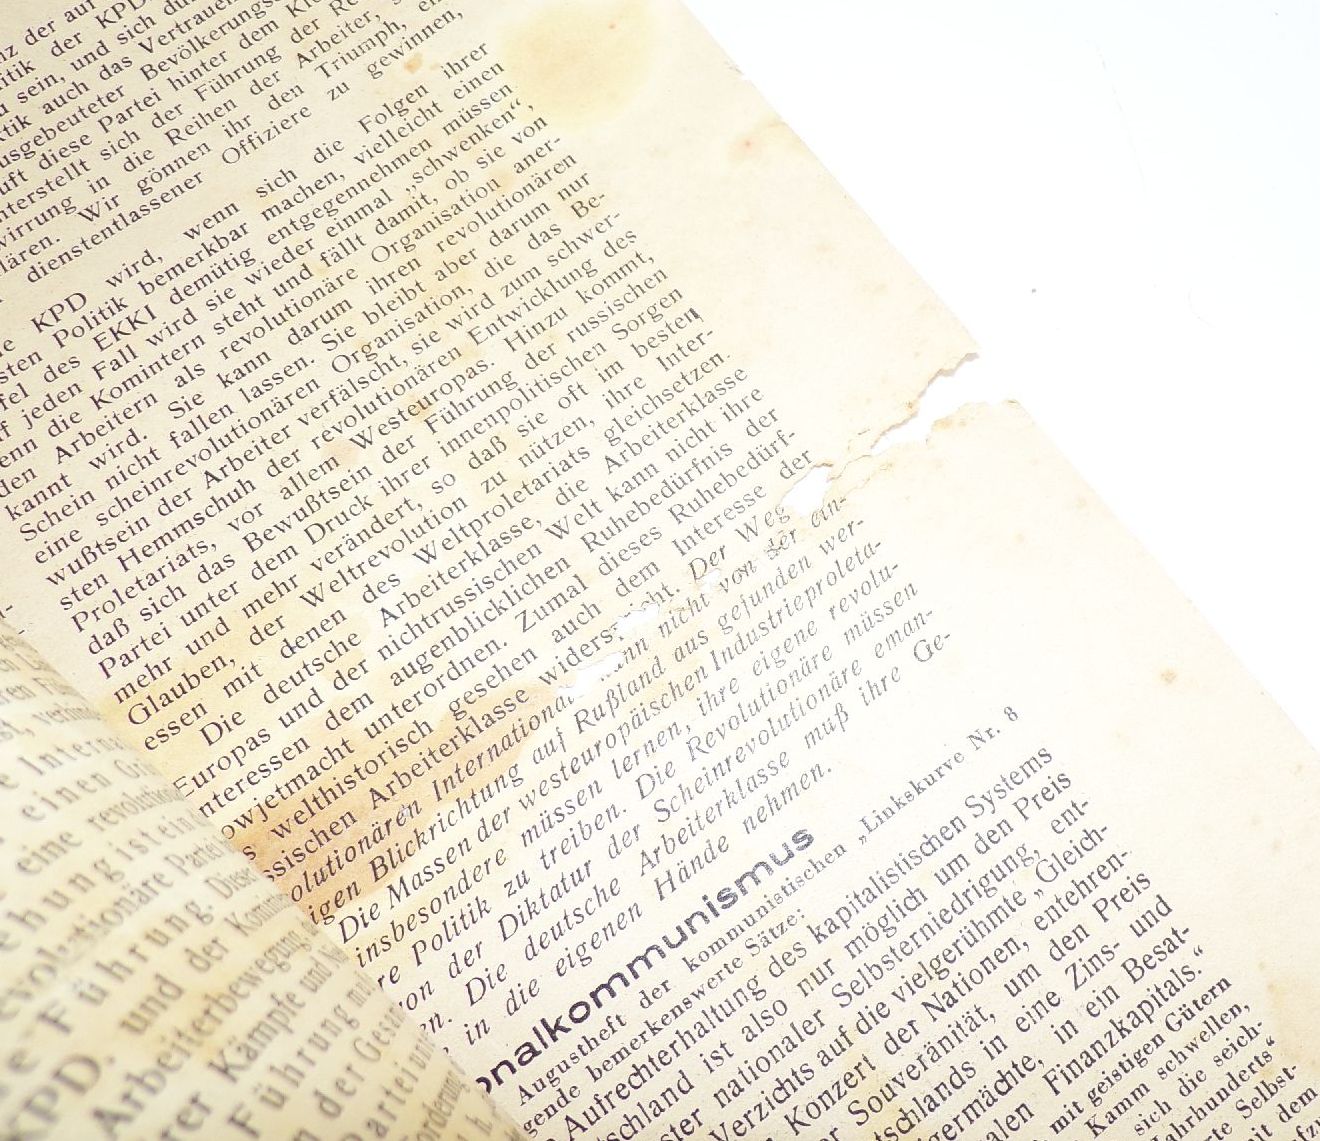 nz der auf
itik der KPD
u sein, und sich dur
ktik auch das Vertrauen
usgebeuteter Bevölkerungs
uft diese Partei hinter dem Kle
nterstellt sich der Führung der Re
wirrung in die Reihen der Arbeiter, s
lären. Wir gönnen ihr den Triumph, en
dienstentlassener Offiziere zu gewinnen,
ie KPD wird, wenn sich die Folgen ihrer
sten Politik bemerkbar machen, vielleicht einen
fel des EKKI demütig entgegennehmen müssen
f jeden Fall wird sie wieder einmal „schwenken“,
enn die Komintern steht und fällt damit, ob sie von
den Arbeitern als revolutionäre Organisation aner-
kannt wird. Sie kann darum ihren revolutionären
Schein nicht fallen lassen. Sie bleibt aber darum nur
eine scheinrevolutionären Organisation, die das Be-
wußtsein der Arbeiter verfälscht, sie wird zum schwer-
sten Hemmschuh der revolutionären Entwicklung des
Proletariats, vor allem Westeuropas. Hinzu kommt,
daß sich das Bewußtsein der Führung der russischen
Partei unter dem Druck ihrer innenpolitischen Sorgen
mehr und mehr verändert, so daß sie oft im besten
Glauben, der Weltrevolution zu nützen, ihre Inter-
essen mit denen des Weltproletariats gleichsetzen.
Die deutsche Arbeiterklasse, die Arbeiterklasse
Europas und der nichtrussischen Welt kann nicht ihre
nteressen dem augenblicklichen Ruhebedürfnis der
owjetmacht unterordnen. Zumal dieses Ruhebedürf-
s welthistorisch gesehen auch dem Interesse der
ssischen Arbeiterklasse widers icht. Der Weg
olutionären Internationa ann nicht von der ein-
igen Blickrichtung auf Rußland aus gefunden wer-
Die Massen der westeuropäischen Industrieproleta-
insbesondere müssen lernen, ihre eigene revolu-
re Politik zu treiben. Die Revolutionäre müssen
on der Diktatur der Scheinrevolutionäre eman-
n. Die deutsche Arbeiterklasse muß ihre Ge-
in die eigenen Hände nehmen.
onalkommunismus
Augustheft der kommunistischen „Linkskurve Nr. 8
gende bemerkenswerte Sätze:
Aufrechterhaltung des kapitalistischen Systems
tschland ist also nur möglich um den Preis
ster nationaler Selbsterniedrigung, ent-
Verzichts auf die vielgerühmte „Gleich-
Konzert der Nationen, entehren-
r Souveränität, um den Preis
tschlands in eine Zins- und
germächte, in ein Besat-
alen Finanzkapitals.“
mit geistigen Gütern
Kamm schwellen,
sich die seich-
ahrhunderts“
te Selbst-
it dem
st, verbind
e Interna
einen Gr
eine revolution
ehung ist ein d
evolutionäre Partei
e Führung. Diese
KPD. und der Komm
Arbeiterbewegung
er Kämpfe und
Führung
der Gesa
Partei un
orderung